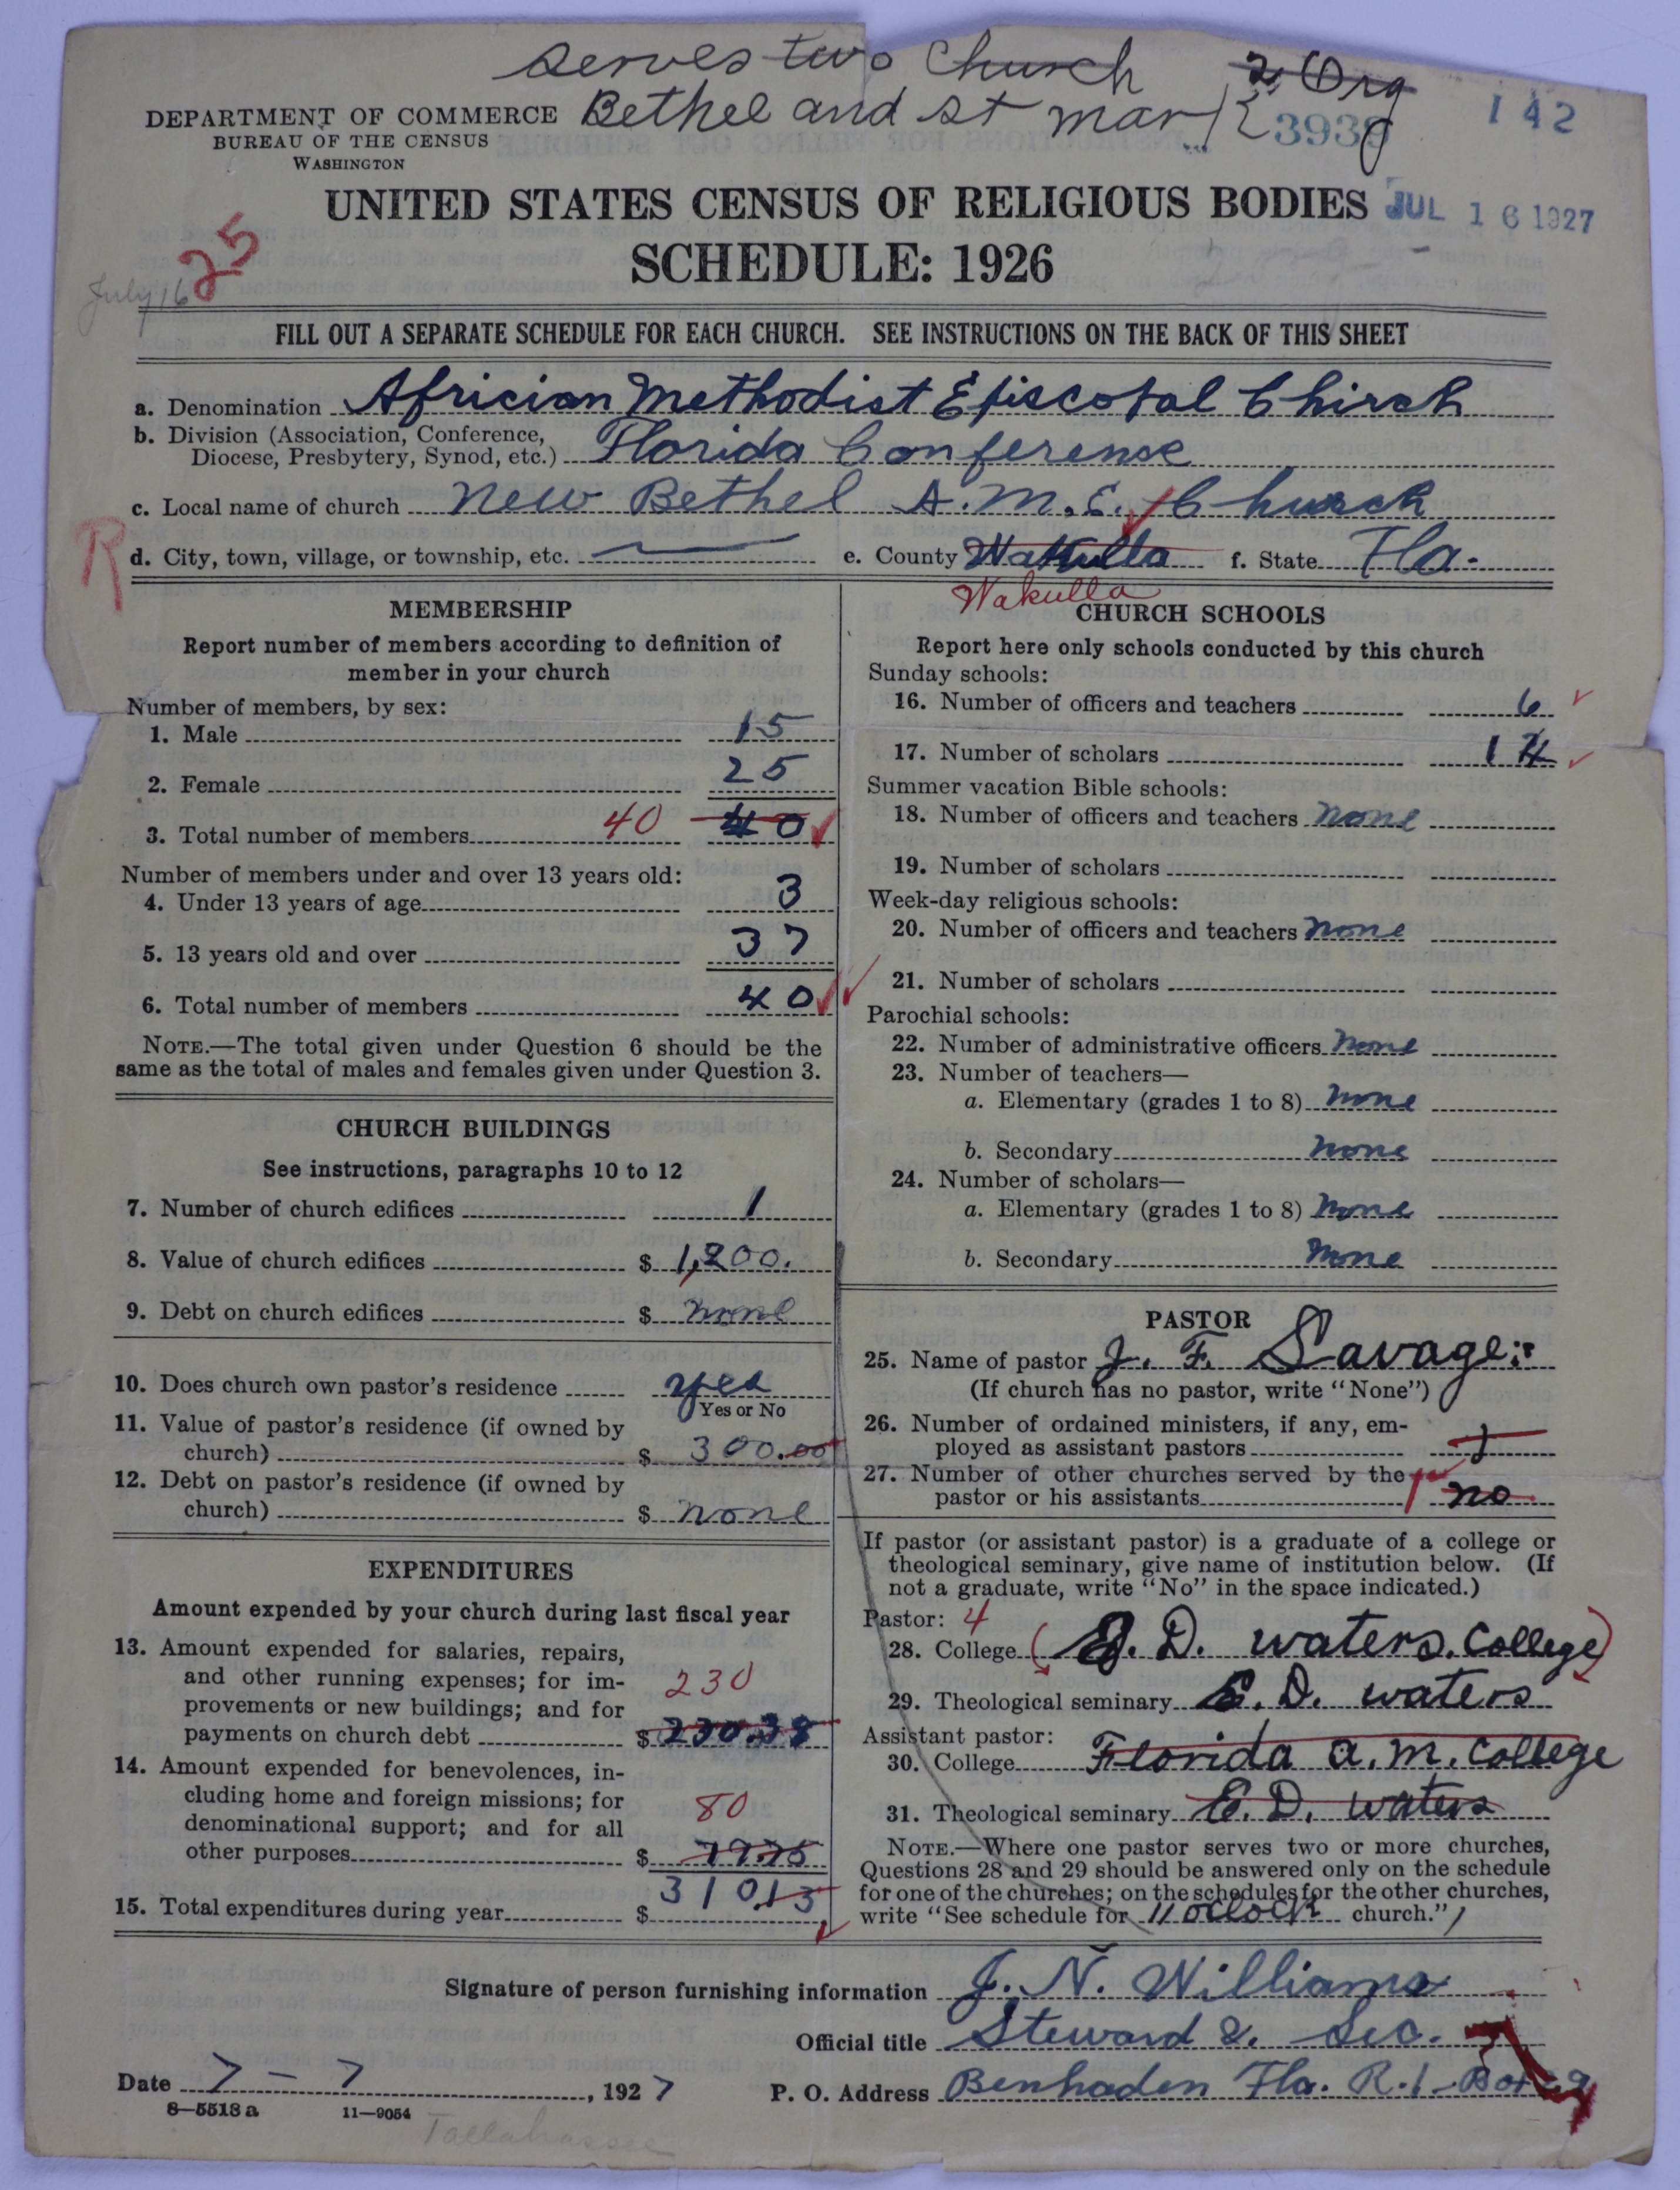 serves two Church 2 Org
Bethel and St mark
DEPARTMENT OF COMMERCE
BUREAU OF THE CENSUS
WASHINGTON
3939
142
UNITED STATES CENSUS OF RELIGIOUS BODIES
JUL 16 1927
SCHEDULE: 1926
25
July 16
FILL OUT A SEPARATE SCHEDULE FOR EACH CHURCH. SEE INSTRUCTIONS ON THE BACK OF THIS SHEET
a. Denomination Africian Methodist Episcopal Chirch
b. Division (Association, Conference,
Diocese, Presbytery, Synod, etc.) Florida Conferense
c. Local name of church New Bethel A.M.E. Church
R
d. City, town, village, or township, etc. e. County f. State Fla.
Wakulla
MEMBERSHIP
Report number of members according to definition of
member in your church
Number of members, by sex:
1. Male 15
2. Female 25
3. Total number of members 40 40
Number of members under and over 13 years old:
4. Under 13 years of age 3
5. 13 years old and over 37
6. Total number of members 40
NOTE.—The total given under Question 6 should be the
same as the total of males and females given under Question 3.
CHURCH BUILDINGS
See instructions, paragraphs 10 to 12
7. Number of church edifices 1
8. Value of church edifices $ 1,200.
9. Debt on church edifices $ none
10. Does church own pastor's residence yes
Yes or No
11. Value of pastor's residence (if owned by
church) $ 300.00
12. Debt on pastor's residence (if owned by
church) $ none
EXPENDITURES
Amount expended by your church during last fiscal year
13. Amount expended for salaries, repairs,
and other running expenses; for im-
provements or new buildings; and for
payments on church debt $ 230.38
230
14. Amount expended for benevolences, in-
cluding home and foreign missions; for
denominational support; and for all
other purposes $ 79.75
80
15. Total expenditures during year $ 310.13
CHURCH SCHOOLS
Report here only schools conducted by this church
Sunday schools:
16. Number of officers and teachers 6
17. Number of scholars 14
Summer vacation Bible schools:
18. Number of officers and teachers none
19. Number of scholars
Week-day religious schools:
20. Number of officers and teachers none
21. Number of scholars
Parochial schools:
22. Number of administrative officers none
23. Number of teachers—
a. Elementary (grades 1 to 8) none
b. Secondary none
24. Number of scholars—
a. Elementary (grades 1 to 8) none
b. Secondary none
PASTOR
25. Name of pastor J. F. Savage
(If church has no pastor, write "None")
26. Number of ordained ministers, if any, em-
ployed as assistant pastors
27. Number of other churches served by the
pastor or his assistants 1 no
If pastor (or assistant pastor) is a graduate of a college or
theological seminary, give name of institution below. (If
not a graduate, write "No" in the space indicated.)
Pastor: 4
28. College (E. D. waters. College)
29. Theological seminary E. D. waters
Assistant pastor:
30. College Florida a. m. College
31. Theological seminary E. D. waters
NOTE.—Where one pastor serves two or more churches,
Questions 28 and 29 should be answered only on the schedule
for one of the churches; on the schedules for the other churches,
write "See schedule for 11 oclock church."
Signature of person furnishing information J. N. Williams
Official title Steward & Sec.
Date 7 - 7, 1927
P. O. Address Benhaden Fla. R. 1 - Box
8—5513a 11—9054
Tallahassee